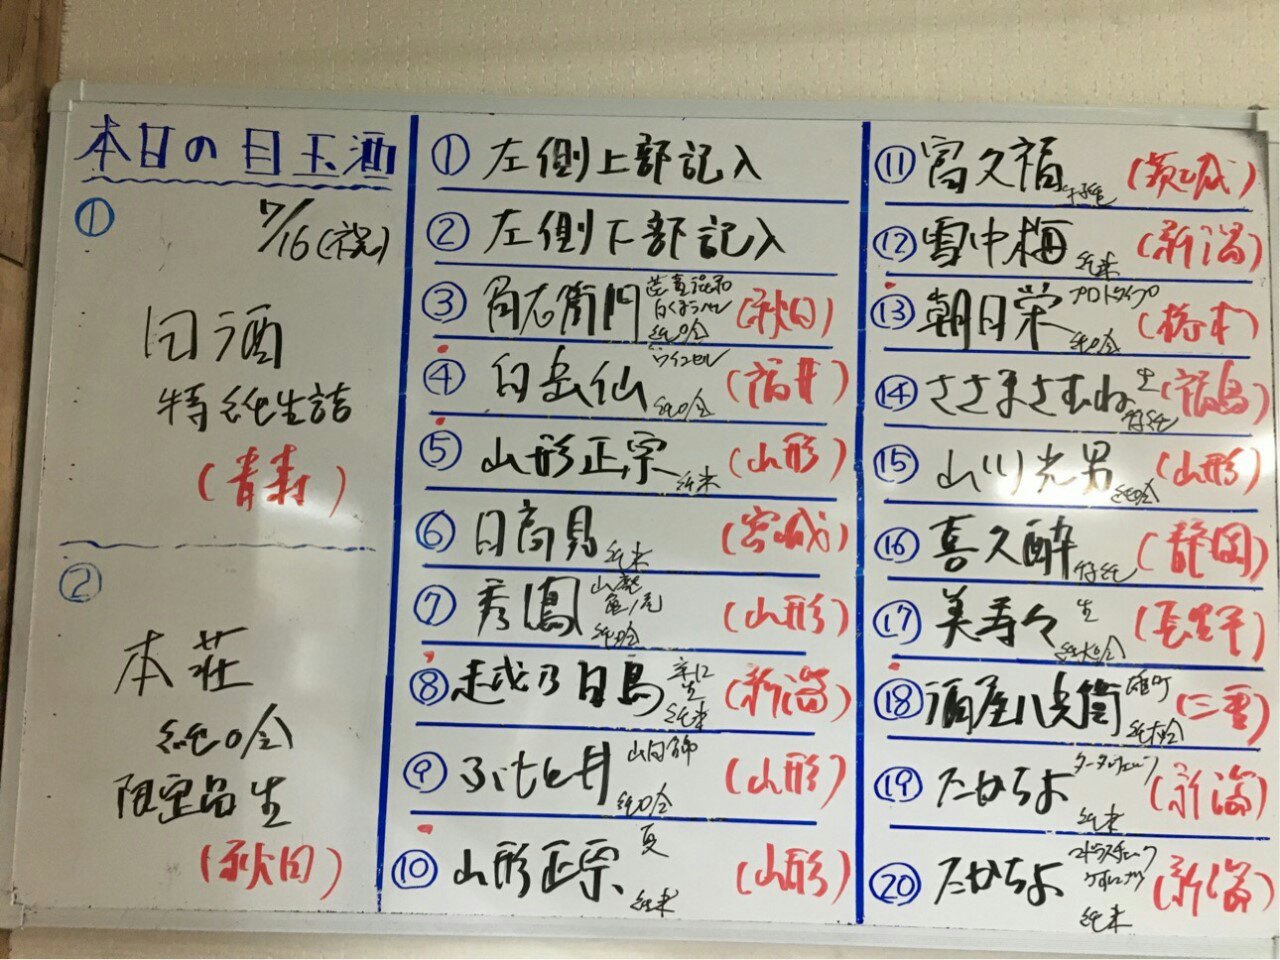 本日の目玉酒
① 7/16(祝)
田酒
特純生詰
(青森)
②
本荘
純吟
限定品生
(秋田)
① 左側上部記入
② 左側下部記入
③ 角右衛門 純吟 (秋田)
④ 白岳仙 純吟 (福井)
⑤ 山形正宗 純米 (山形)
⑥ 日高見 純米 (宮城)
⑦ 秀鳳 山廃 亀ノ尾 純吟 (山形)
⑧ 越乃白鳥 辛口 生 純米 (新潟)
⑨ ふもと井 純吟 (山形)
⑩ 山形正宗 夏 純米 (山形)
⑪ 富久福 (茨城)
⑫ 雪中梅 純米 (新潟)
⑬ 朝日栄 プロトタイプ 純吟 (栃木)
⑭ ささまさむね 生 特純 (福島)
⑮ 山川光男 純吟 (山形)
⑯ 喜久酔 特純 (静岡)
⑰ 美寿々 生 純大吟 (長野)
⑱ 酒屋八兵衛 雄町 純大吟 (三重)
⑲ たかちよ 純米 (新潟)
⑳ たかちよ 純米 (新潟)